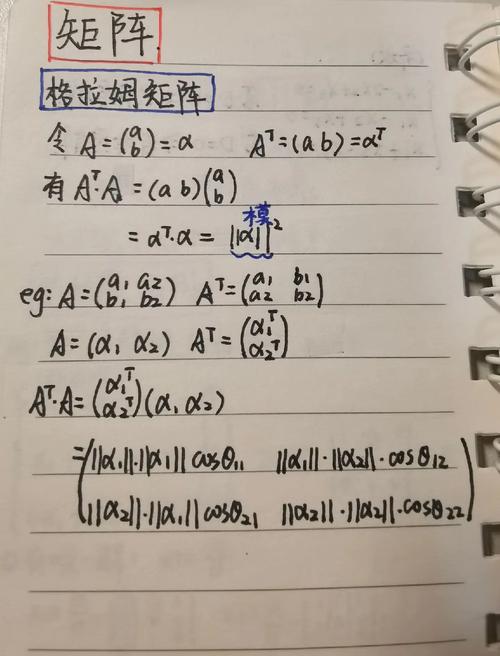 矩阵
格拉姆矩阵
令 A=(a b)=α Aᵀ=(a b)=αᵀ
有 Aᵀ·A=(a b)(a b)
模
=αᵀ·α=||α||²
eg: A=(a₁ a₂ b₁ b₂) Aᵀ=(a₁ b₁ a₂ b₂)
A=(α₁ α₂) Aᵀ=(α₁ᵀ α₂ᵀ)
Aᵀ·A=(α₁ᵀ α₂ᵀ)(α₁ α₂)
=(||α₁||·||α₁|| cosθ₁₁ ||α₁||·||α₂||·cosθ₁₂
||α₂||·||α₁|| cosθ₂₁ ||α₂||·||α₂||·cosθ₂₂)